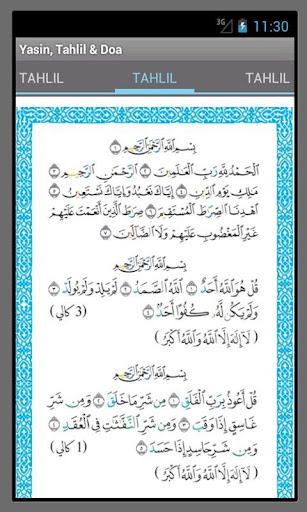 3G 11:30
Yasin, Tahlil & Doa
TAHLIL TAHLIL TAHLIL
بِسْمِ اللَّهِ الرَّحْمَٰنِ الرَّحِيمِ ﴿١﴾
الْحَمْدُ لِلَّهِ رَبِّ الْعَالَمِينَ ﴿٢﴾ الرَّحْمَٰنِ الرَّحِيمِ ﴿٣﴾
مَالِكِ يَوْمِ الدِّينِ ﴿٤﴾ إِيَّاكَ نَعْبُدُ وَإِيَّاكَ نَسْتَعِينُ ﴿٥﴾
اهْدِنَا الصِّرَاطَ الْمُسْتَقِيمَ ﴿٦﴾ صِرَاطَ الَّذِينَ أَنْعَمْتَ عَلَيْهِمْ
غَيْرِ الْمَغْضُوبِ عَلَيْهِمْ وَلَا الضَّالِّينَ ﴿٧﴾
بِسْمِ اللَّهِ الرَّحْمَٰنِ الرَّحِيمِ
قُلْ هُوَ اللَّهُ أَحَدٌ ﴿١﴾ اللَّهُ الصَّمَدُ ﴿٢﴾ لَمْ يَلِدْ وَلَمْ يُولَدْ ﴿٣﴾
وَلَمْ يَكُن لَّهُ كُفُوًا أَحَدٌ ﴿٤﴾ (3 كالي)
( لَآ إِلَهَ إِلَّا اللَّهُ وَاللَّهُ أَكْبَرُ )
بِسْمِ اللَّهِ الرَّحْمَٰنِ الرَّحِيمِ
قُلْ أَعُوذُ بِرَبِّ الْفَلَقِ ﴿١﴾ مِن شَرِّ مَا خَلَقَ ﴿٢﴾ وَمِن شَرِّ
غَاسِقٍ إِذَا وَقَبَ ﴿٣﴾ وَمِن شَرِّ النَّفَّاثَاتِ فِي الْعُقَدِ ﴿٤﴾
وَمِن شَرِّ حَاسِدٍ إِذَا حَسَدَ ﴿٥﴾ (1 كالي)
( لَآ إِلَهَ إِلَّا اللَّهُ وَاللَّهُ أَكْبَرُ )